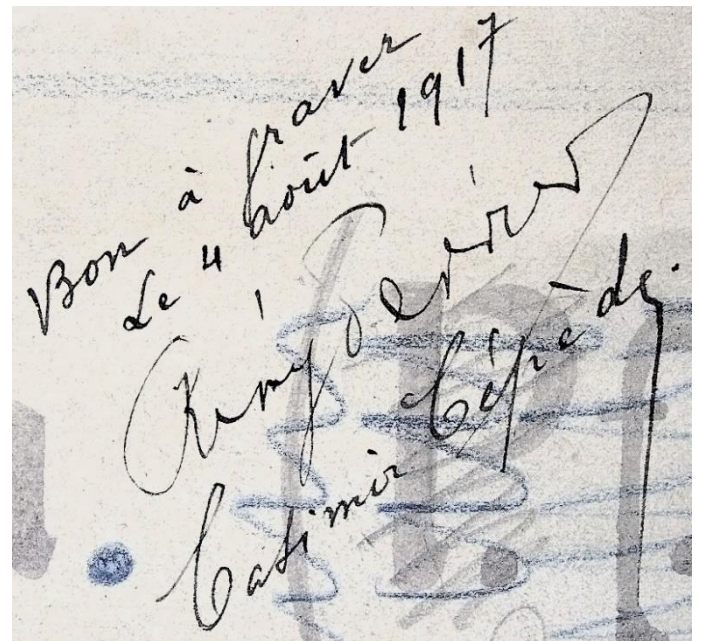 Bon à graver
Le 4 Août 1917
Rémy Perrier
Casimir Cépède.